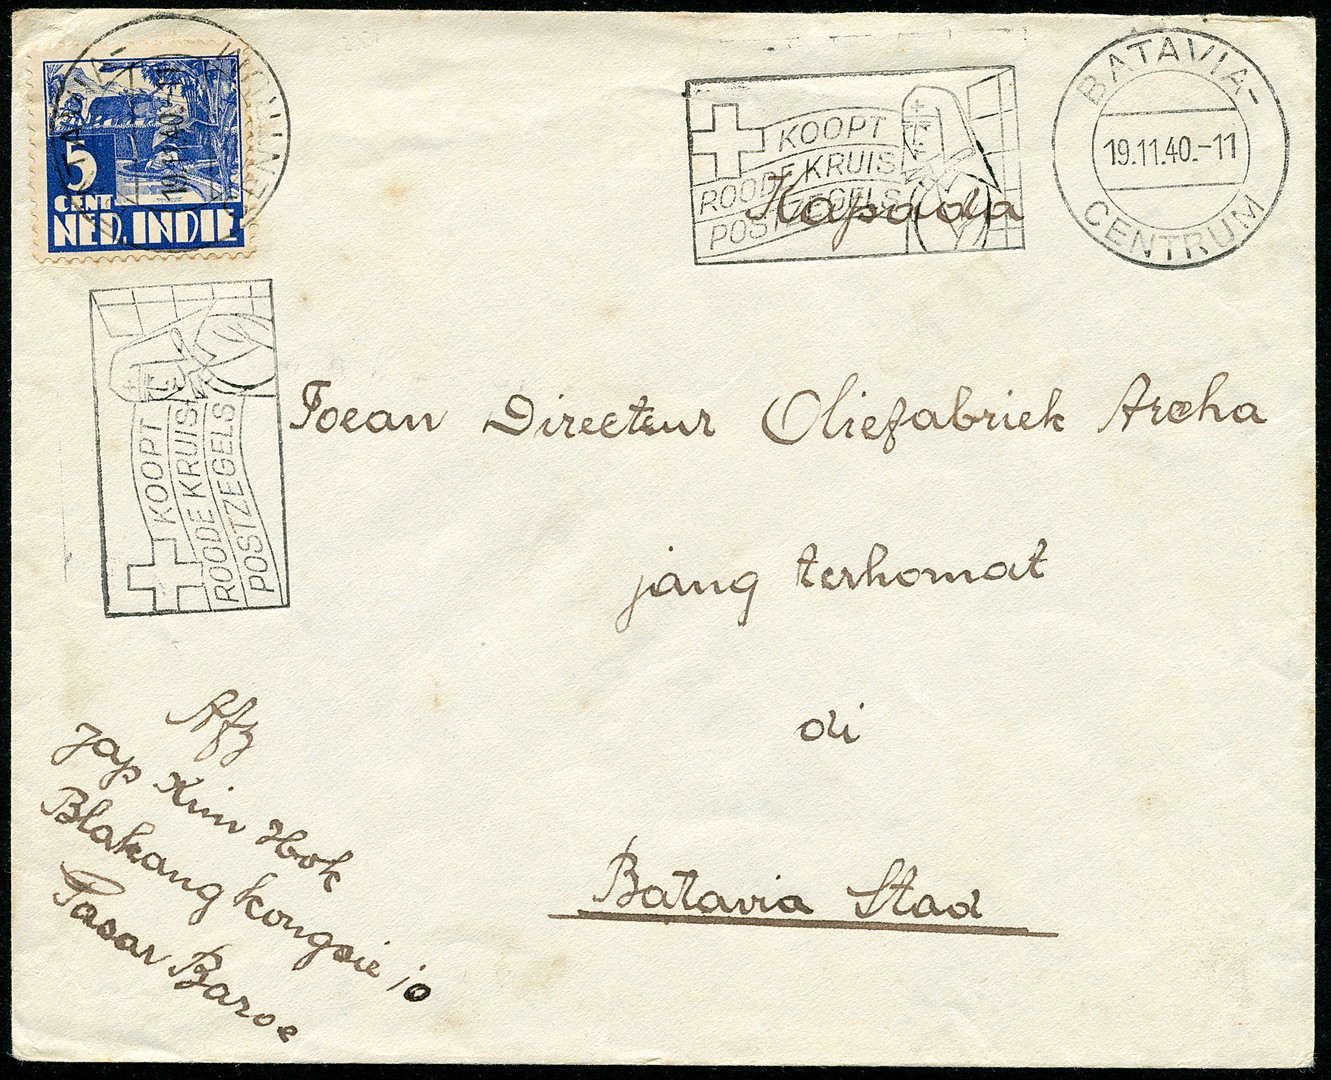 5
CENT
NED. INDIE
KOOPT
ROODE KRUIS
POSTZEGELS
BATAVIA-
19.11.40.-11
CENTRUM
Kapada
KOOPT
ROODE KRUIS
POSTZEGELS
Toean Directeur Oliefabriek Archa
jang terhomat
di
Batavia Stad
Afz
Jap Kim Hok
Blakang Kongsie 10
Pasar Baroe